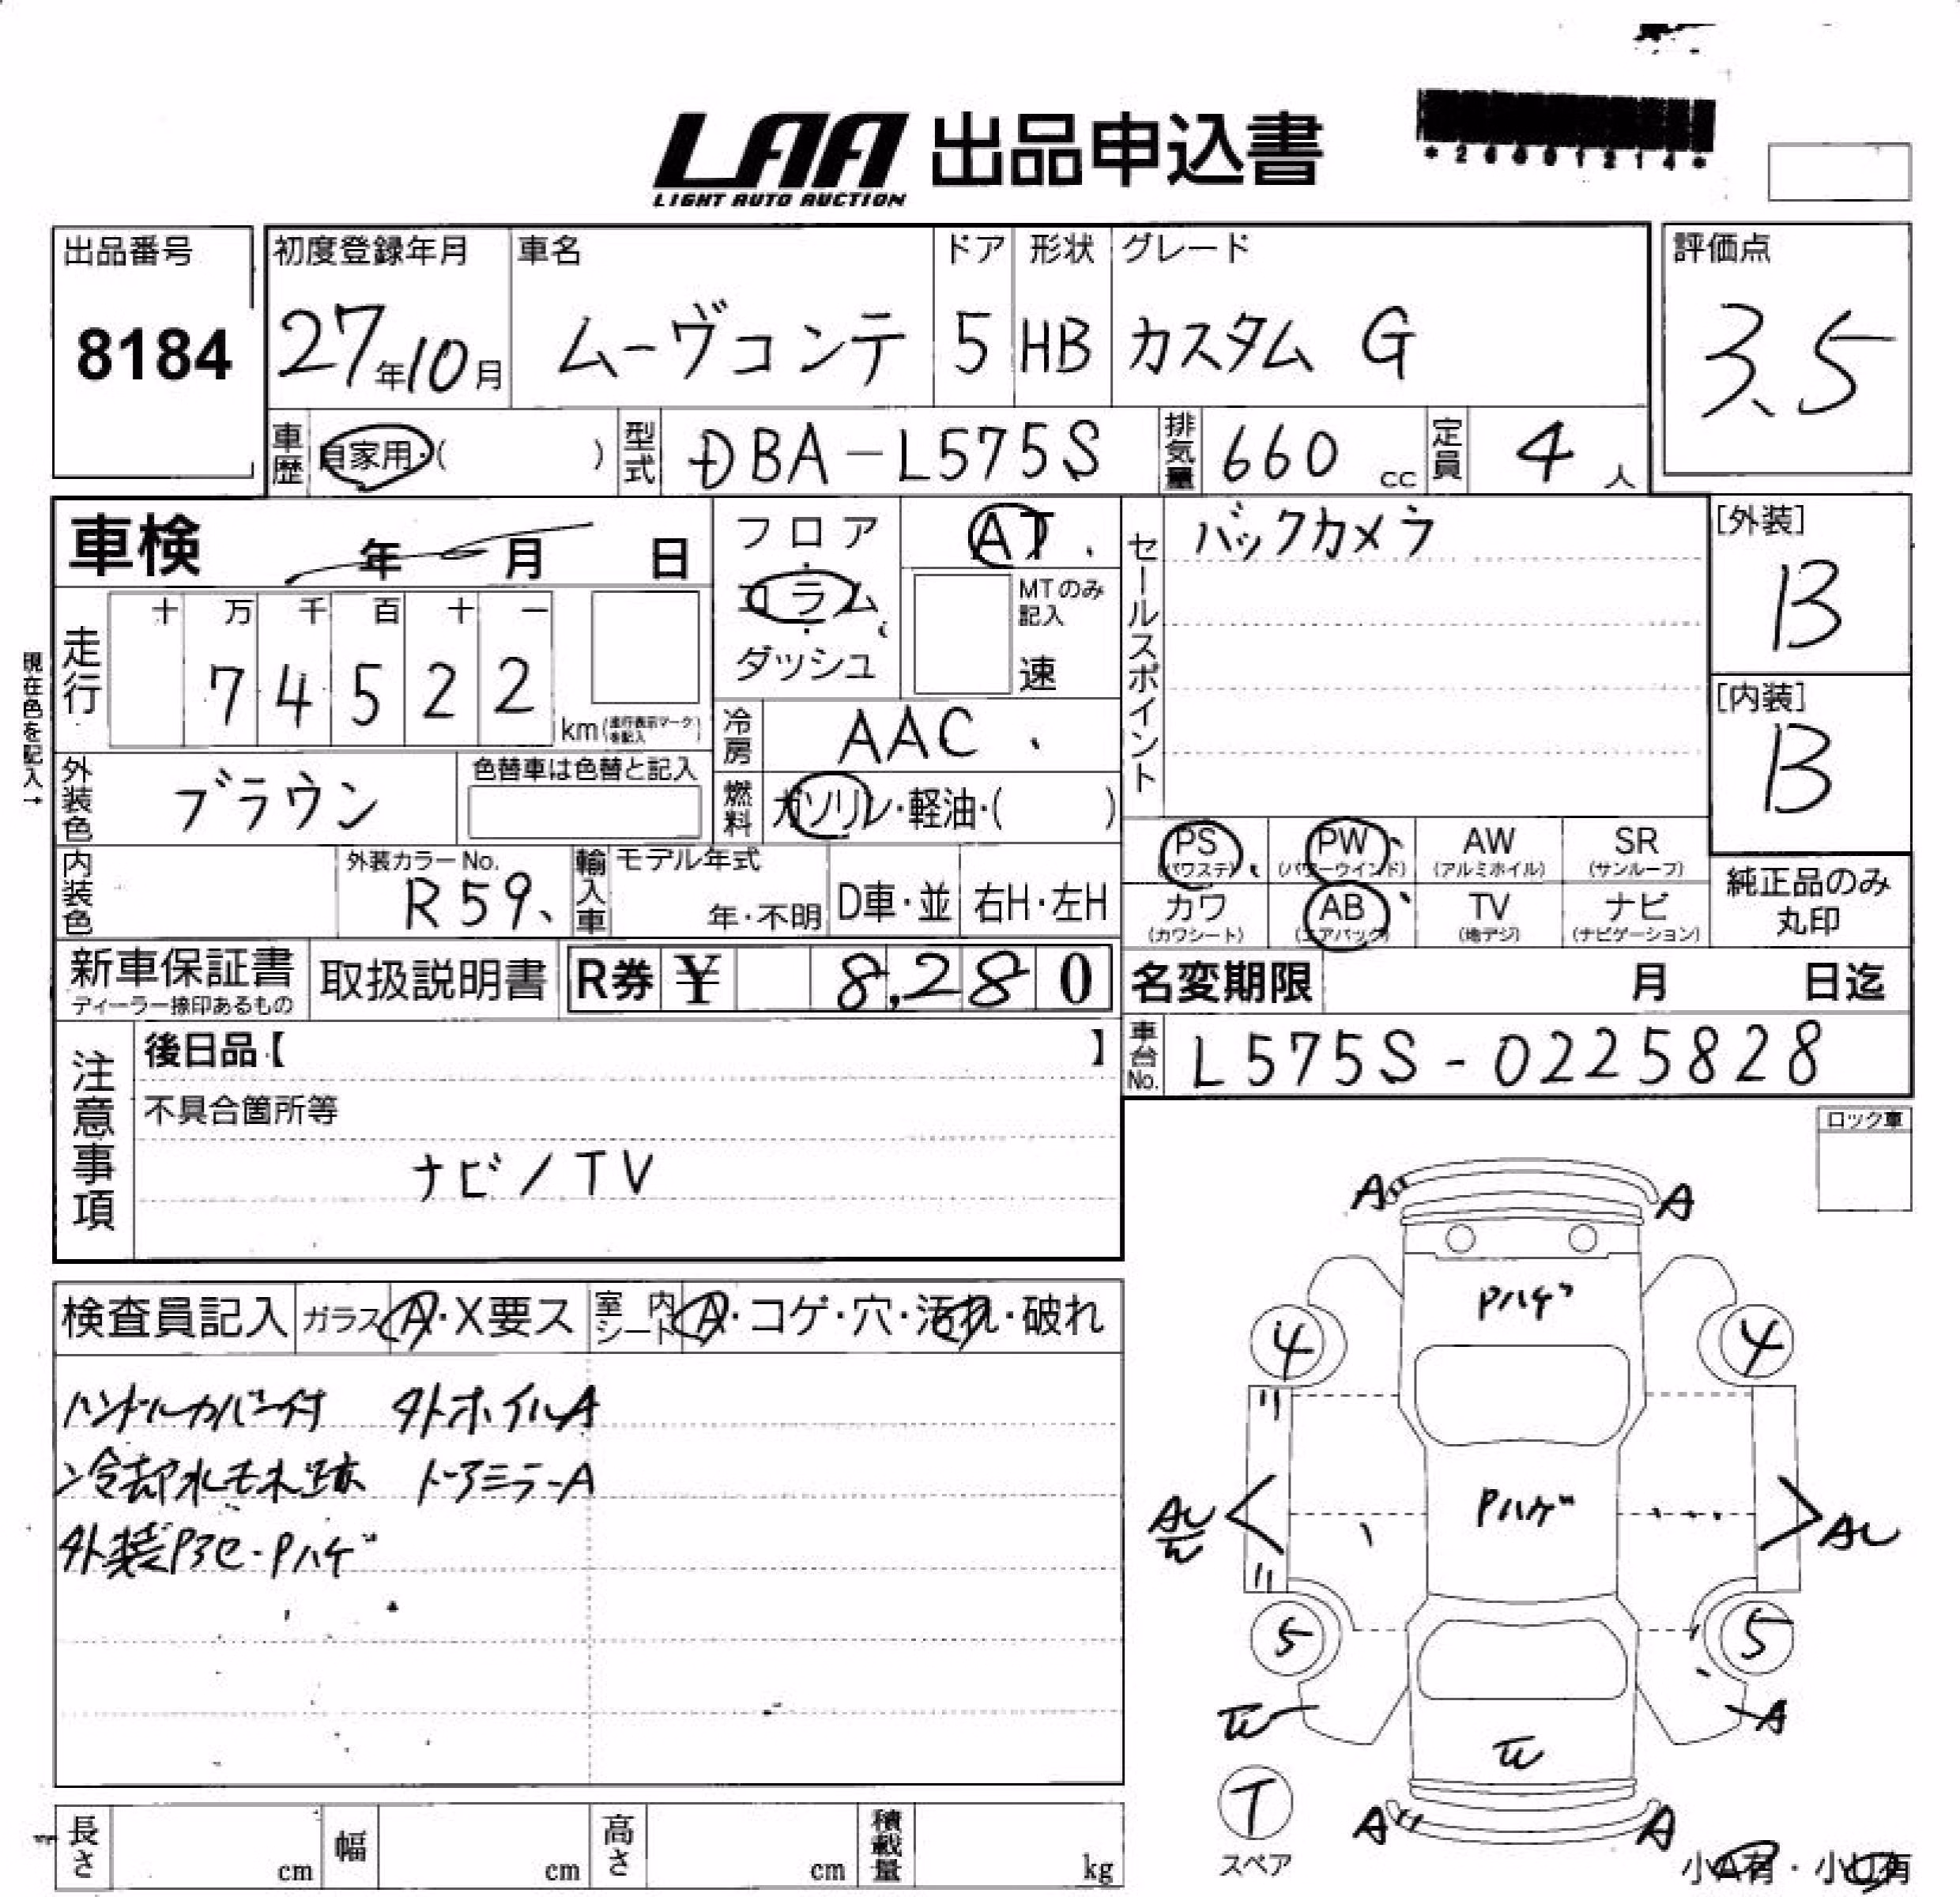 LAA 出品申込書
LIGHT AUTO AUCTION
*26001214*
出品番号 初度登録年月 車名 ドア 形状 グレード 評価点
8184 27年10月 ムーヴコンテ 5 HB カスタム G 3.5
車歴 自家用・( ) 型式 DBA-L575S 排気量 660 cc 定員 4 人
車検 年 月 日
フロア・コラム・ダッシュ
AT
MTのみ記入 速
セールスポイント バックカメラ
[外装] B
[内装] B
走行 十 万 千 百 十 一
7 4 5 2 2 km (走行表示マークを記入)
現在色を記入→
冷房 AAC
外装色 ブラウン 色替車は色替と記入
燃料 ガソリン・軽油・( )
PS (パワステ) PW (パワーウインド) AW (アルミホイル) SR (サンルーフ)
カワ (カワシート) AB (エアバック) TV (地デジ) ナビ (ナビゲーション)
純正品のみ
丸印
内装色 外装カラーNo. R59 輸入車 モデル年式 年・不明 D車・並 右H・左H
新車保証書 ディーラー捺印あるもの 取扱説明書 R券 ¥ 8,280
名変期限 月 日迄
車台No. L575S-0225828
注意事項 後日品【 】
不具合箇所等
ナビ/TV
ロック車
検査員記入 ガラス A・X要ス 室内シート A・コゲ・穴・汚れ・破れ
ハンドルカバー付 外ホイルA
冷却水モレ跡 ドアミラーA
外装Pアセ・Pハゲ
A A
Pハゲ
4 4
Pハゲ
AU AU
5 5
A
T
スペア
A A
小A有・小U有
長さ cm 幅 cm 高さ cm 積載量 kg